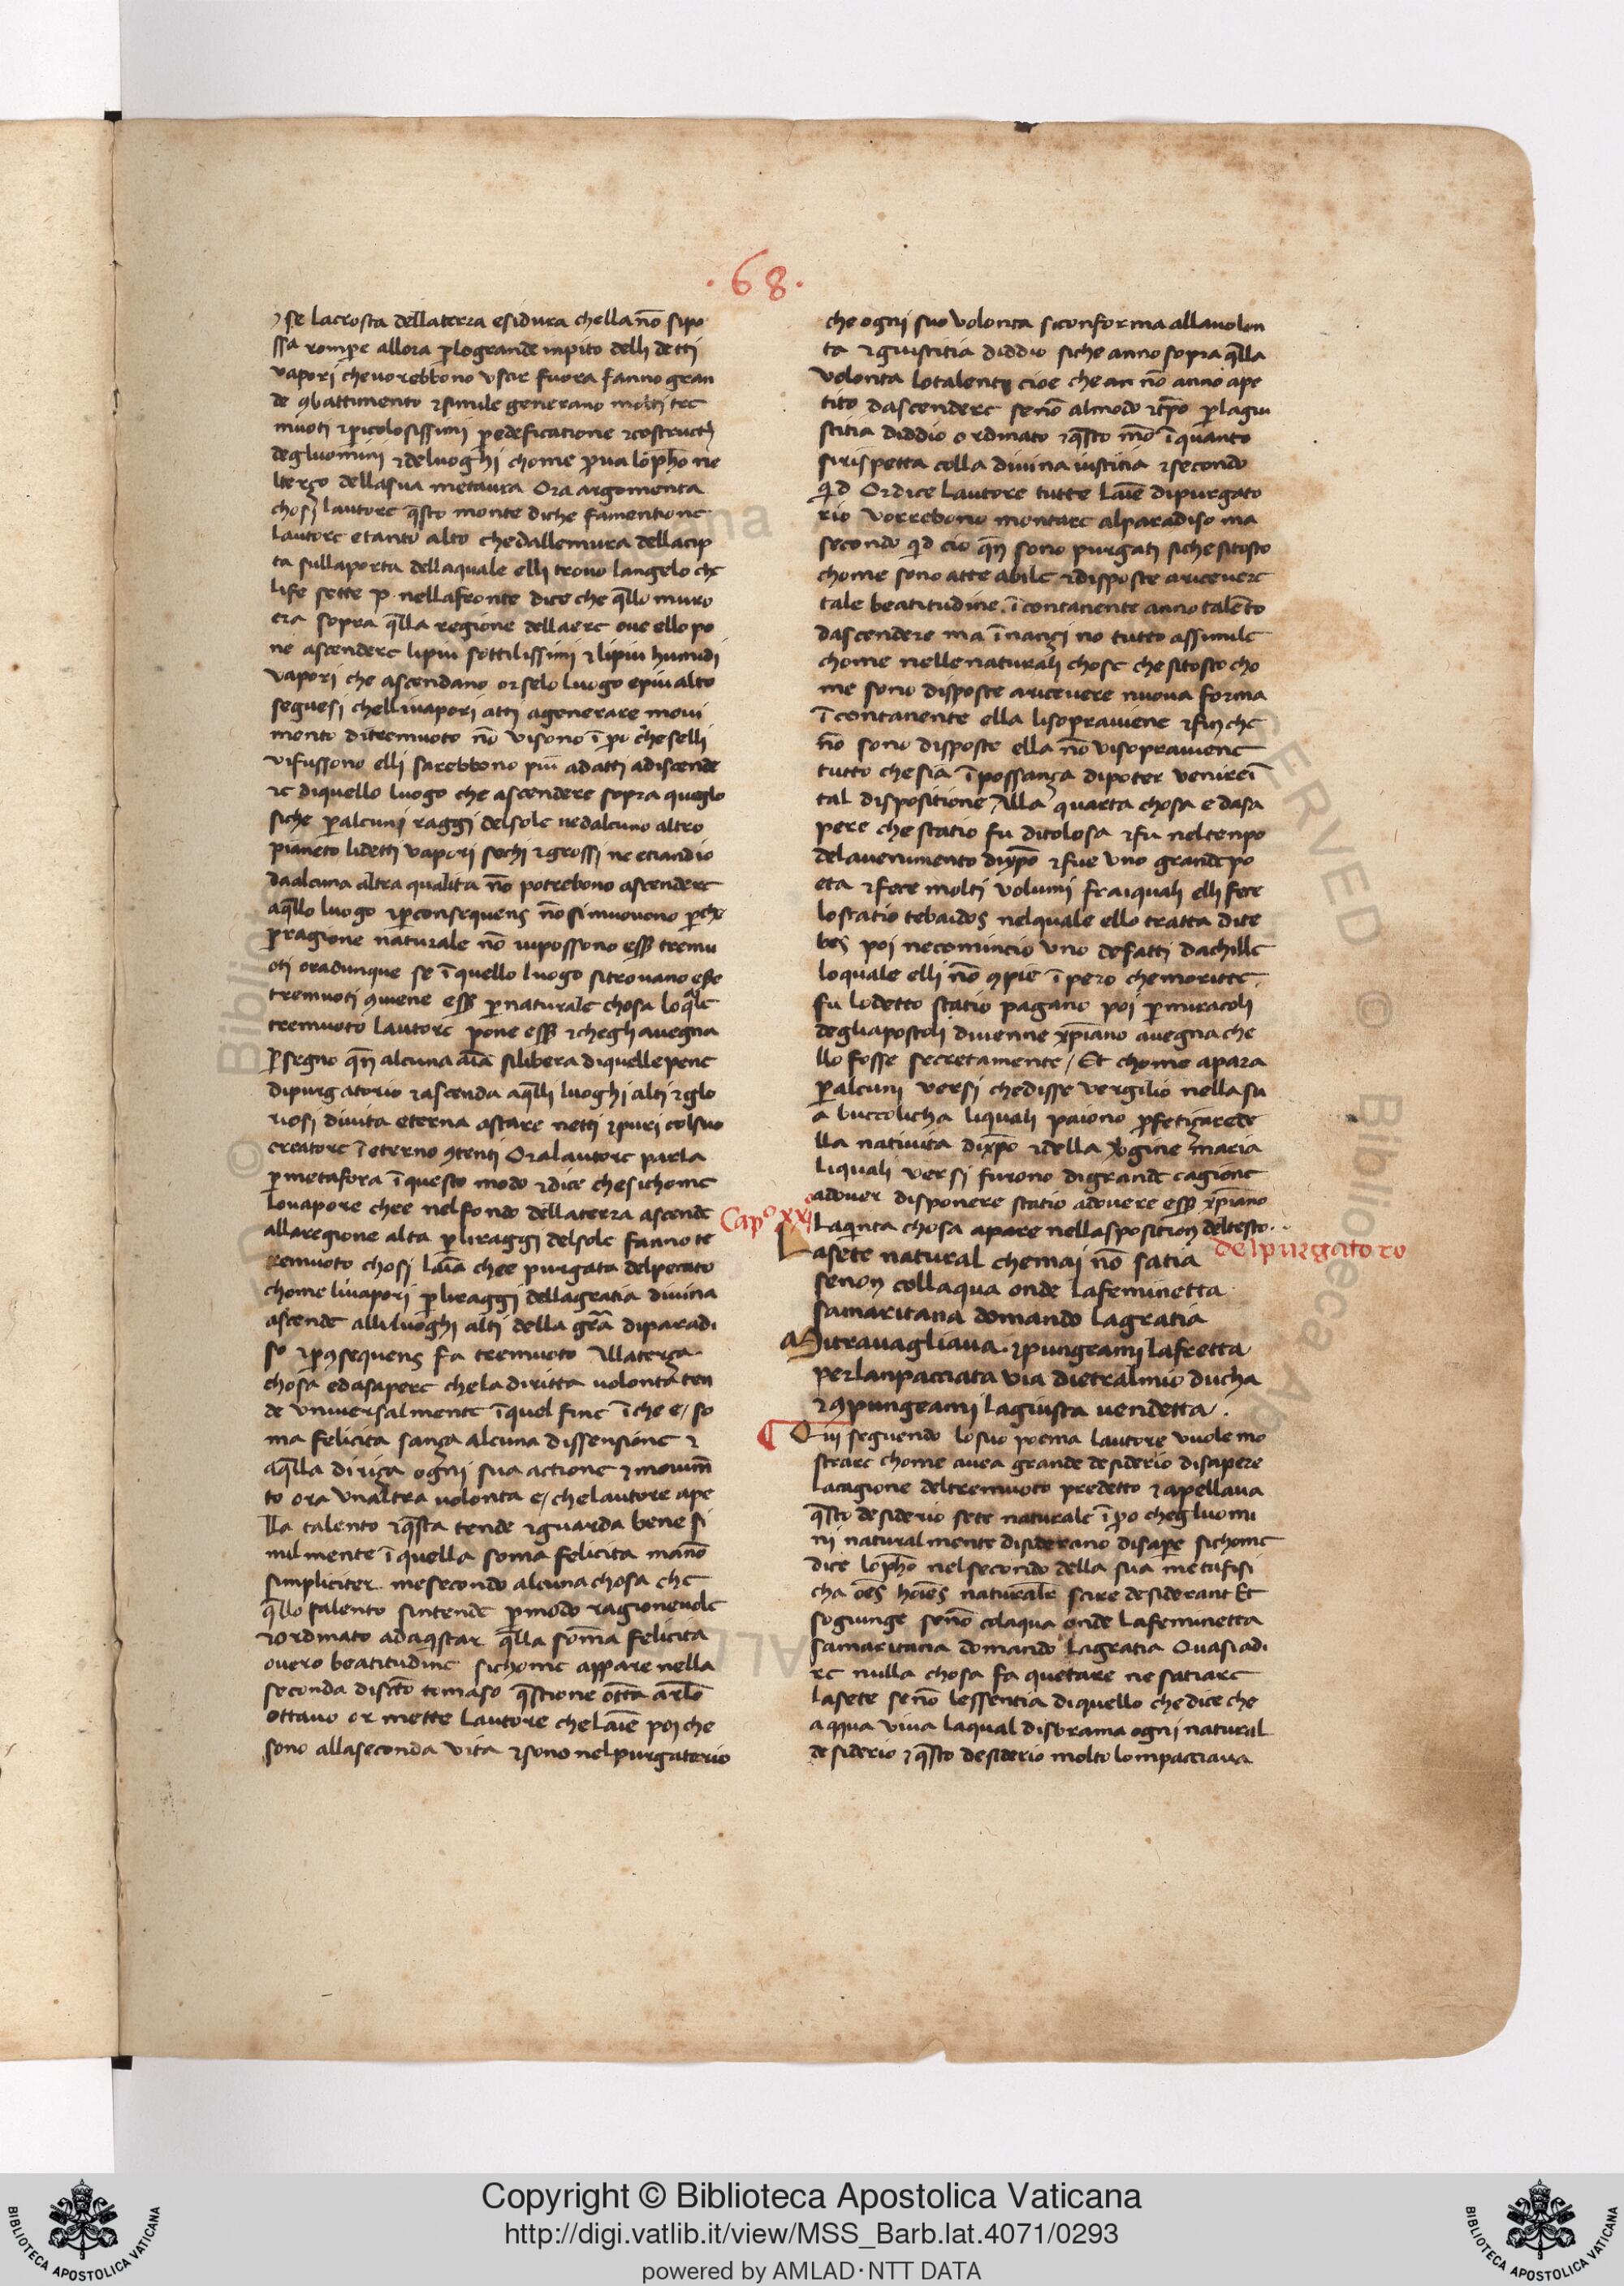 ·68·
⁊ se lacrosta dellaterra esidura chella nō sipo
ssa rompe allora plogrande inpito delli detti
vapori chevorebbono vscir fuora fanno gran
de ꝯbattimento ⁊simile generano molti tre
muoti ⁊picolosissimi pedeficatione ⁊costructi
degluomini ⁊deluoghi chome pua lopħo ne
lterço dellasua metaura Ora argomenta
chosi lautore q̄sto monte diche famentione
lautore etanto alto chedallemura dellacip
ta sullaporta dellaquale elli trovo langelo che
life sette p nellafronte dice che q̄llo muro
era sopra q̄lla regione dellaere ove ello po
ne ascendere lipiu sottilissimi ⁊lipiu humidi
vapori che ascendano or selo luogo epiu alto
seguesi chellivapori atti agenerare movi
mento ditremuoto nō visono īpo che selli
vifussono elli sarebbono piu adatti adiscende
re diquello luogo che ascendere sopra queglo
siche palcuni raggi delsole nedalcuno altro
pianeto lidetti vapori sechi ⁊grossi ne etiandio
daalcuna altra qualita nō potrebono ascendere
aq̄llo luogo ⁊pconsequens nō simuovono pche
pragione naturale nō inpossono ess̄ tremu
oti oradunque se ī quello luogo sitrovano esse
tremuoti ꝯviene ess̄ pnaturale chosa loq̄le
tremuoto lautore pone ess̄ ⁊chegli avegna
psegno qn̄ alcuna aīa silibera diquellepene
dipurgatorio ⁊ascenda aq̄lli luoghi alti ⁊glo
riosi divita eterna astare netti ⁊puri colsuo
creatore ī eterno ꝯtenti Oralautore parla
pmetafora ī questo modo ⁊dice chesichome
lovapore chee nelfondo dellaterra ascende
allaregione alta pliraggi delsole fanno te
remuoto chosi laīa chee purgata delpecato
chome livapori pliraggi dellagratia divina
ascende alliluoghi alti della gr̄a diparadi
so ⁊pꝯsequens fa tremuoto Allaterça
chosa edasapere chela diritta volonta ten
de universalmente īquel fine ī che e/ so
ma felicita sança alcuna dissensione ⁊
aq̄lla diriça ogni sua actione ⁊movim̄
to ora unaltra volonta e/ chelautore ape
lla talento ⁊q̄sta tende ⁊guarda bene si
milmente ī quella soma felicita manō
simpliciter mesecondo alcuna chosa che
q̄llo talento sintende pmodo ragionevole
⁊ordinato adaq̄star q̄lla som̄a felicita
overo beatitudine sichome appare nella
seconda discto tomaso q̄stione otta arlo
ottavo or mette lautore chelaīe poi che
sono allaseconda vita ⁊sono nelpurgatorio
che ogni suo volonta siconforma allavolon
ta ⁊giustitia diddio siche anno sopra q̄lla
volonta lotalento cioe che an nō anno ape
tito dascendere senō almodo ⁊tp̄o plagiu
stitia diddio ordinato ⁊q̄sto mō īquanto
sirispetta colla divina iustitia ⁊secondo
q̄d Ordice lautore tutte laīe dipurgato
rio vorrebono montare alparadiso ma
secondo q̄d cio qn̄ sono purgati sichesitosto
chome sono atte abile ⁊disposte aricevere
tale beatitudine ī contanente anno talēto
dascendere ma īnançi no tutto assimile
chome nellenaturali chose che sitosto cho
me sono disposte aricevere nuova forma
ī contanente ella lisopraviene ⁊finche
nō sono disposte ella nō visopraviene
tutto chesia ī possança dipoter venireī
tal dispositione Alla quarta chosa e dasa
pere che statio fu ditolosa ⁊fu neltenpo
delavenimento dixp̄o ⁊fue uno grandepo
eta ⁊fece molti volumi fraiquali elli fece
lostatio tebaidos nelquale ello tratta dite
bes poi necomincio uno defatti dachille
loquale elli nō ꝯpie īpero chemoritte
fu lodetto statio pagano poi pmiracoli
degliapostoli divenne xp̄iano avegna che
llo fosse secretamente / Et chome apara
palcuni versi chedisse vergilio nellasu
a buccolicha liquali paiono pfetiçarede
lla nativita dixp̄o ⁊della vgine maria
liquali versi furono digrande cagione
adover disponere statio adovere ess̄ xp̄iano
Laq̄nta chosa apare nellasposition deltesto··
Capº xxiº
delpurgatoro
Lasete natural chemai nō satia
senon collaqua onde lafeminetta
samaritana domando lagratia
Mitravagliava ⁊pungeami lafretta
perlanpacciata via dietralmio ducha
⁊ꝯpungeami lagiusta vendetta.
¶ Qui seguendo losuo poema lautore vuole mo
strare chome avea grande desiderio disapere
lacagione deltremuoto predetto ⁊apellava
q̄sto desiderio sete naturale īpo chegluomi
ni naturalmente disiderano disape sichome
dice lopħo nelsecondo della sua metafisi
cha oēs hoīes naturale scire desiderant Et
sogiunge senō colaqua onde lafeminetta
samaritana domando lagratia Quasi adi
re nulla chosa fa quetare ne satiare
lasete senō lessentia diquello chedice che
aqqua viva laqual disbrama ogni natural
desiderio ⁊q̄sto desiderio molto lompacciava
Copyright © Biblioteca Apostolica Vaticana
http://digi.vatlib.it/view/MSS_Barb.lat.4071/0293
powered by AMLAD·NTT DATA
BIBLIOTECA APOSTOLICA VATICANA
BIBLIOTECA APOSTOLICA VATICANA